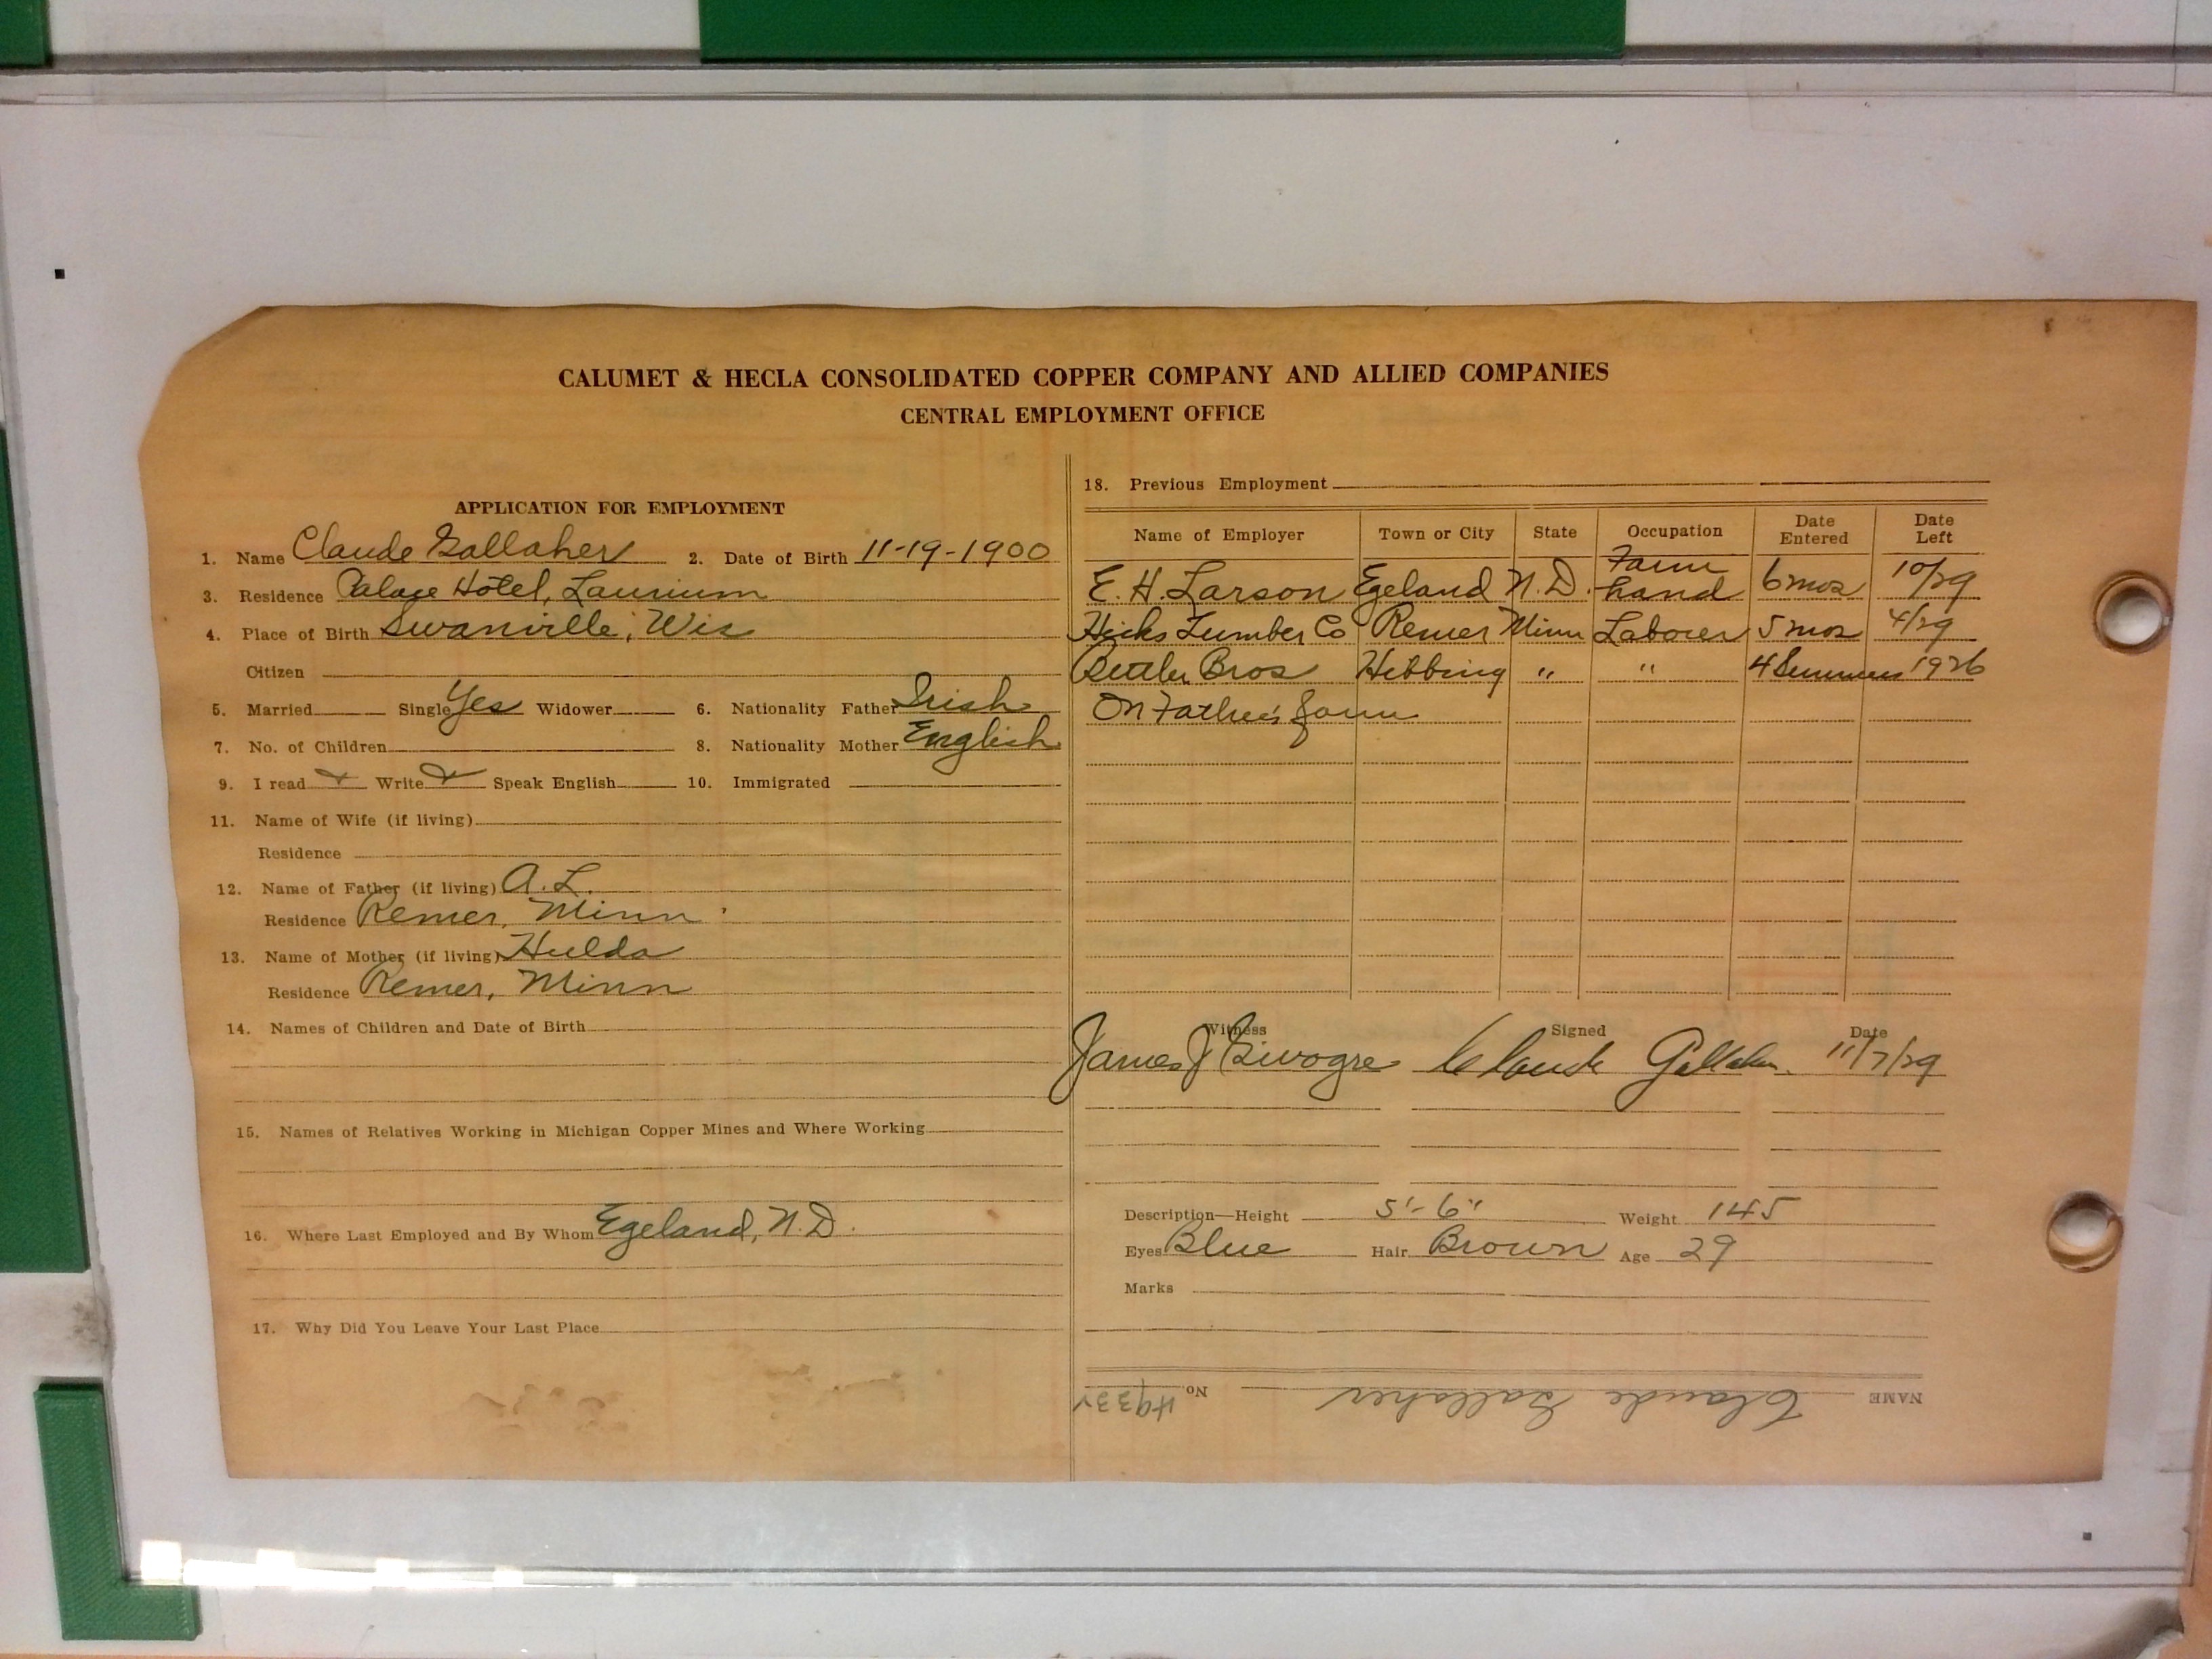 CALUMET & HECLA CONSOLIDATED COPPER COMPANY AND ALLIED COMPANIES
CENTRAL EMPLOYMENT OFFICE
APPLICATION FOR EMPLOYMENT
1. Name Claude Gallaher 2. Date of Birth 11-19-1900
3. Residence Palace Hotel, Laurium
4. Place of Birth Swanville, Wis
Citizen
5. Married Single Yes Widower 6. Nationality Father Irish
7. No. of Children 8. Nationality Mother English
9. I read Write Speak English 10. Immigrated
11. Name of Wife (if living)
Residence
12. Name of Father (if living) A. L.
Residence Remer, Minn
13. Name of Mother (if living) Hulda
Residence Remer, Minn
14. Names of Children and Date of Birth
15. Names of Relatives Working in Michigan Copper Mines and Where Working
16. Where Last Employed and By Whom Egeland, N.D.
17. Why Did You Leave Your Last Place
18. Previous Employment
Name of Employer Town or City State Occupation Date Entered Date Left
E. H. Larson Egeland N.D. Farm hand 6 mos 10/29
Hicks Lumber Co Remer Minn Laborer 5 mos 4/29
Bros Hibbing " " 4 Summers 1926
On Father's farm
Witness Signed Date
James J Claude Gallaher 11/7/29
Description—Height 5'-6" Weight 145
Eyes Blue Hair Brown Age 29
Marks
NAME Claude Gallaher No.